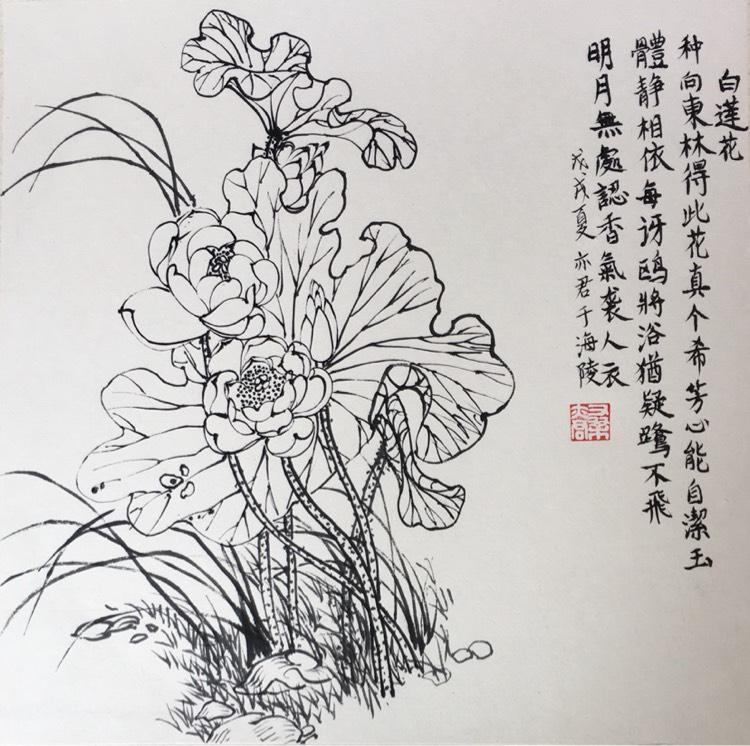 白蓮花
种向東林得此花真个希芳心能自潔玉
體静相依每讶鸥將浴猶疑鹭不飛
明月無處認香氣袭人衣
戊戌夏亦君于海陵